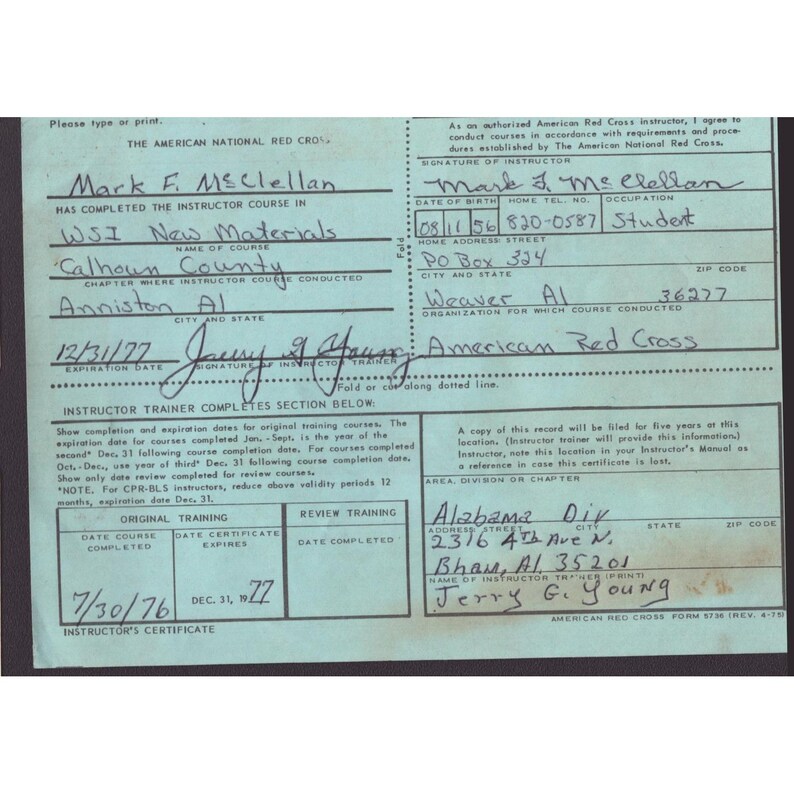 Please type or print.
THE AMERICAN NATIONAL RED CROSS
Mark F. McClellan
HAS COMPLETED THE INSTRUCTOR COURSE IN
WSI New Materials
NAME OF COURSE
Calhoun County
CHAPTER WHERE INSTRUCTOR COURSE CONDUCTED
Anniston Al
CITY AND STATE
12/31/77 Jerry G Young
EXPIRATION DATE SIGNATURE OF INSTRUCTOR TRAINER
Fold
As an authorized American Red Cross instructor, I agree to
conduct courses in accordance with requirements and proce-
dures established by The American National Red Cross.
SIGNATURE OF INSTRUCTOR
Mark F. McClellan
DATE OF BIRTH HOME TEL. NO. OCCUPATION
08 11 56 820-0587 Student
HOME ADDRESS: STREET
PO Box 324
CITY AND STATE ZIP CODE
Weaver Al 36277
ORGANIZATION FOR WHICH COURSE CONDUCTED
American Red Cross
Fold or cut along dotted line.
INSTRUCTOR TRAINER COMPLETES SECTION BELOW:
Show completion and expiration dates for original training courses. The
expiration date for courses completed Jan. - Sept. is the year of the
second* Dec. 31 following course completion date. For courses completed
Oct. - Dec., use year of third* Dec. 31 following course completion date.
Show only date review completed for review courses.
*NOTE. For CPR-BLS instructors, reduce above validity periods 12
months, expiration date Dec. 31.
ORIGINAL TRAINING REVIEW TRAINING
DATE COURSE COMPLETED DATE CERTIFICATE EXPIRES DATE COMPLETED
7/30/76 DEC. 31, 1977
INSTRUCTOR'S CERTIFICATE
A copy of this record will be filed for five years at this
location. (Instructor trainer will provide this information.)
Instructor, note this location in your Instructor's Manual as
a reference in case this certificate is lost.
AREA, DIVISION OR CHAPTER
Alabama Div
ADDRESS: STREET CITY STATE ZIP CODE
2316 4th Ave N.
Bham, Al 35201
NAME OF INSTRUCTOR TRAINER (PRINT)
Jerry G. Young
AMERICAN RED CROSS FORM 5736 (REV. 4-75)